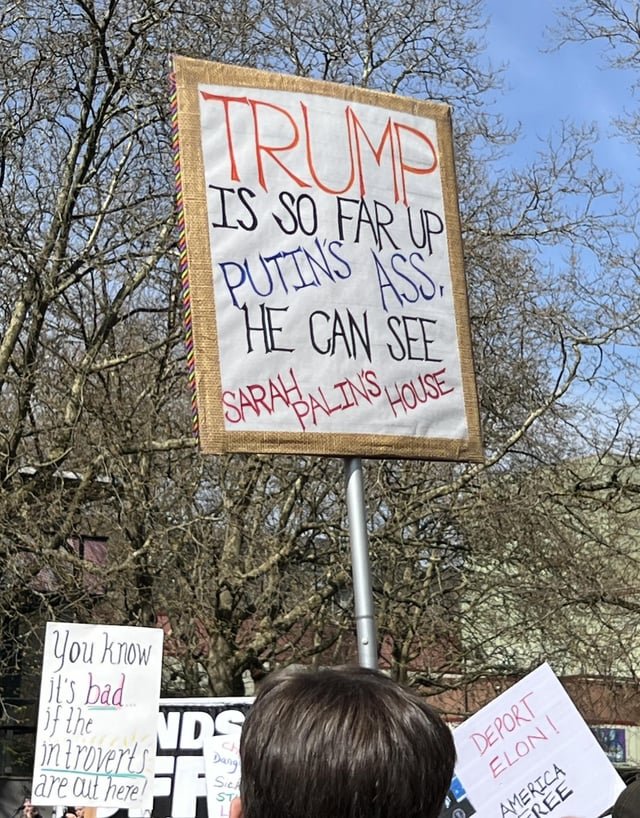 TRUMP
IS SO FAR UP
PUTIN'S ASS,
HE CAN SEE
SARAH PALIN'S HOUSE
You know
it's bad...
if the
introverts
are out here!
NDS
FF
DEPORT
ELON!
AMERICA
FREE